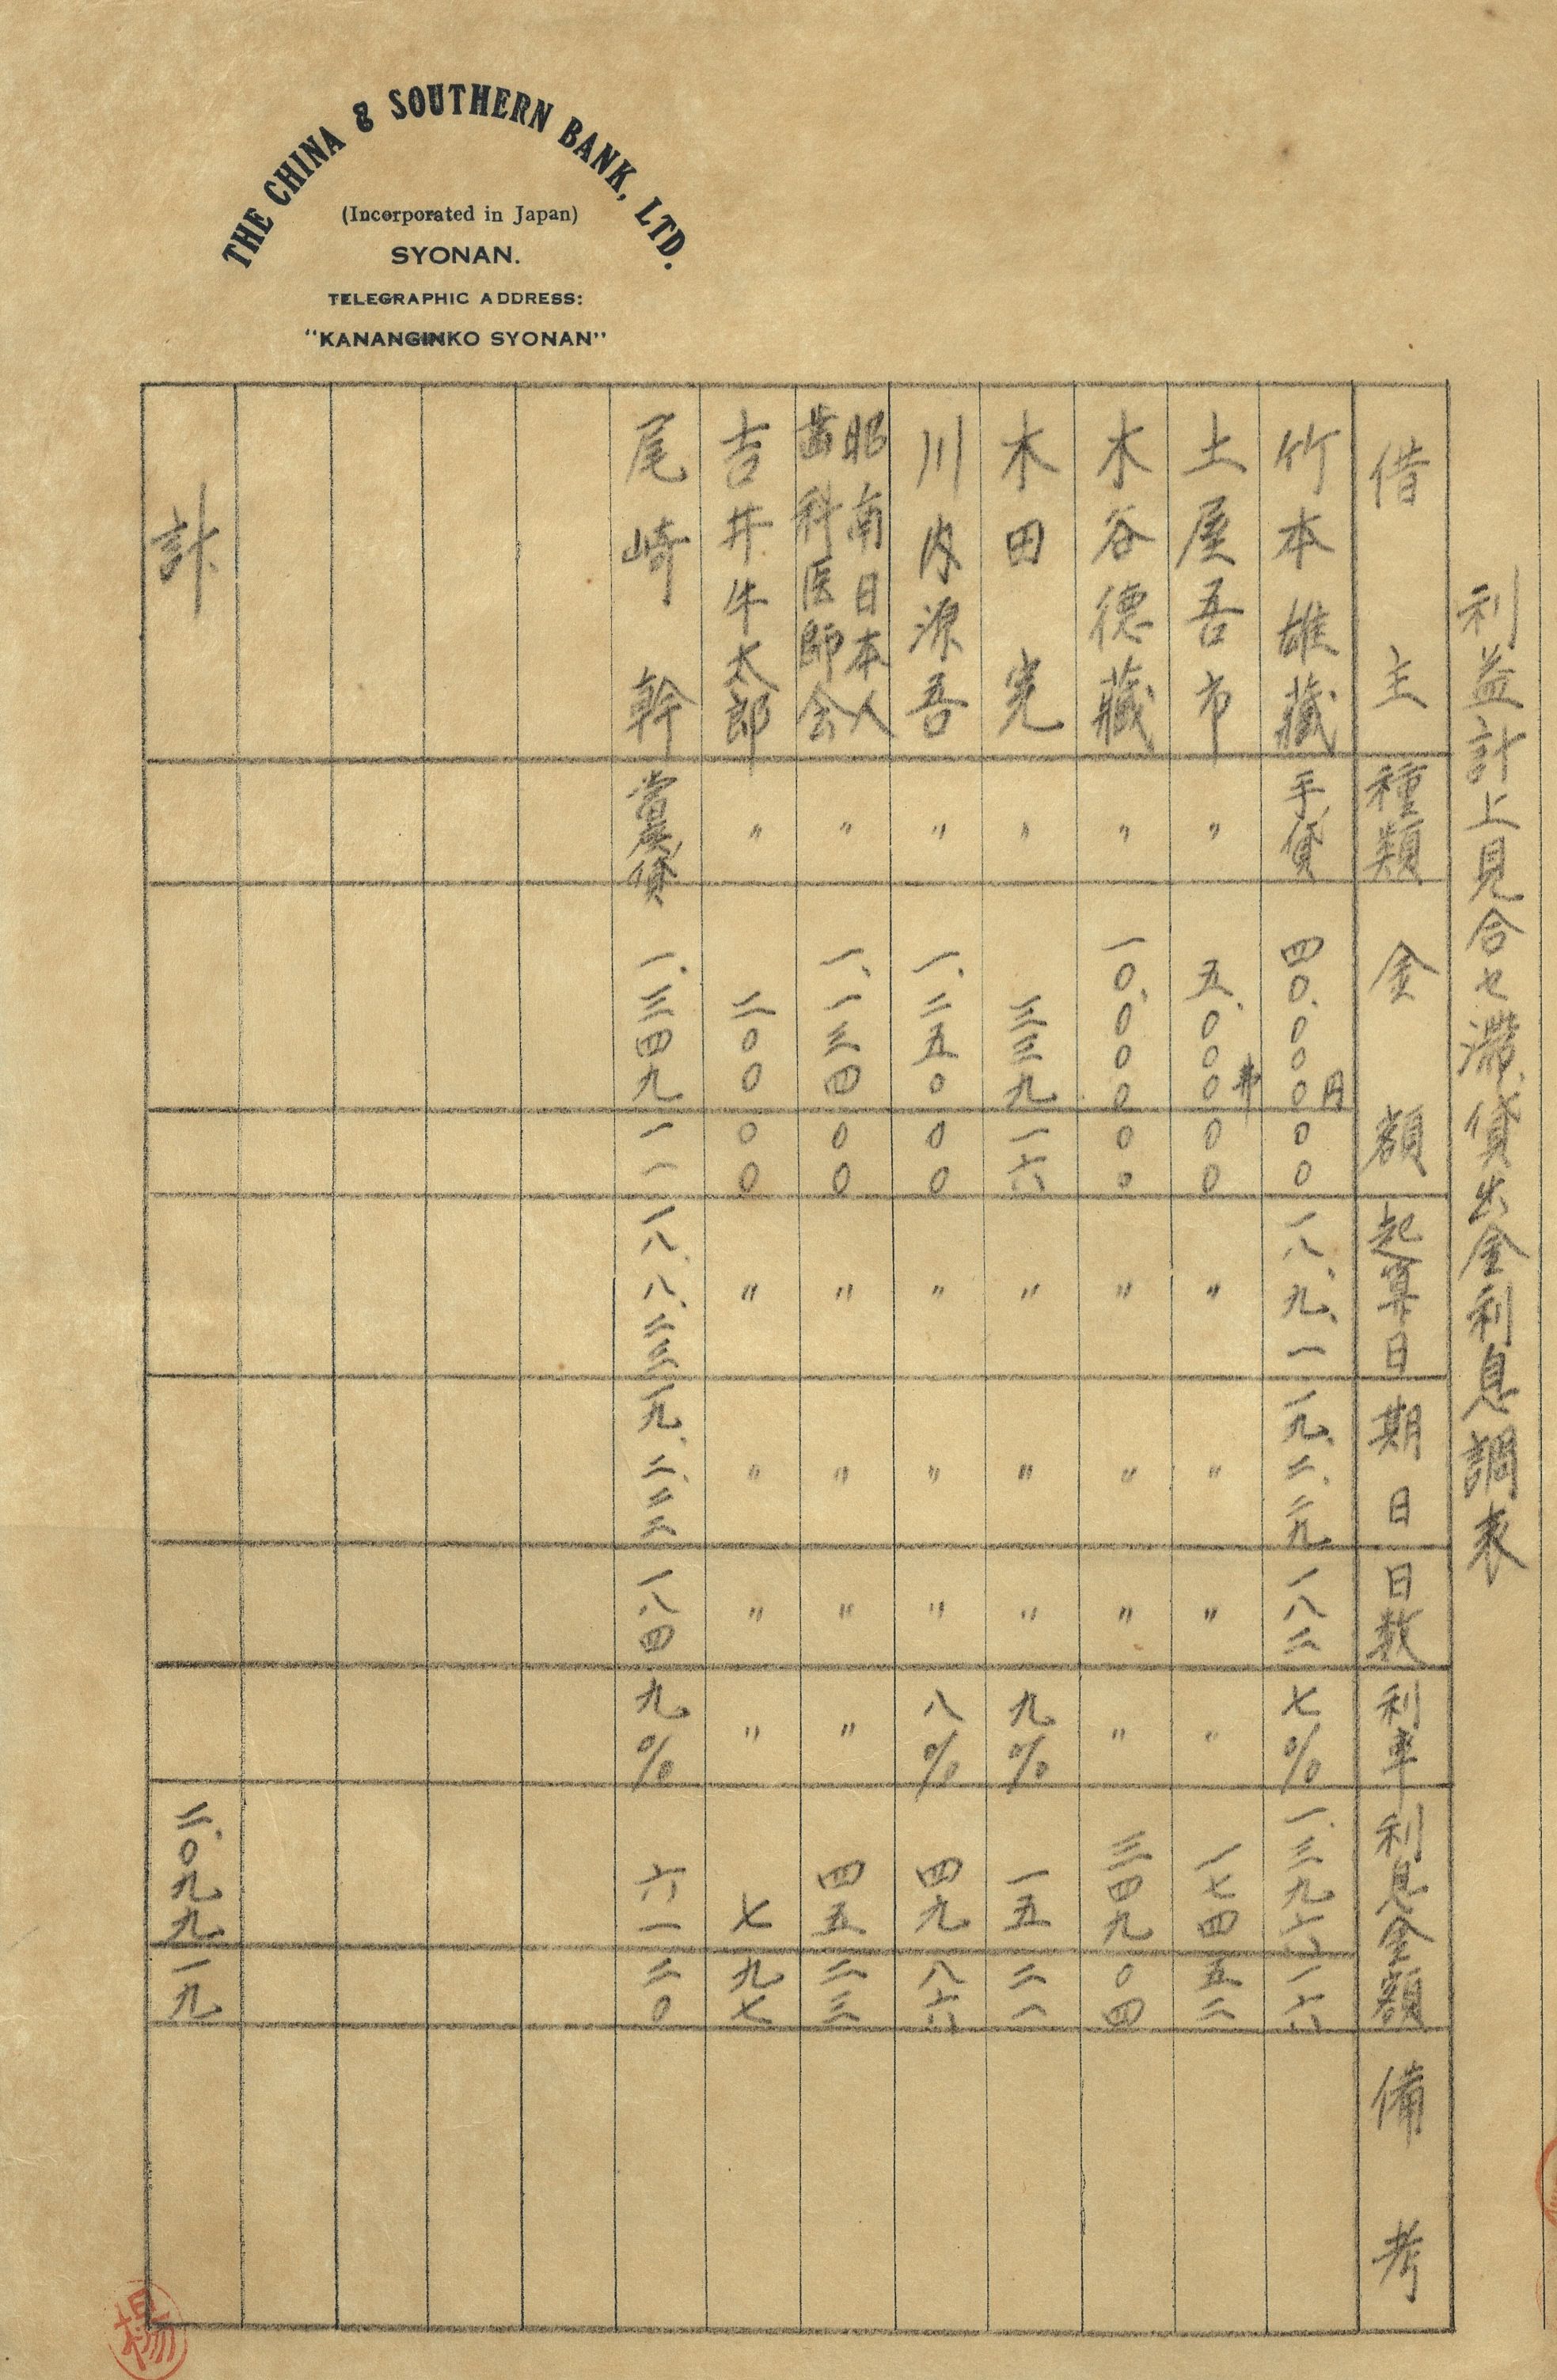 THE CHINA & SOUTHERN BANK, LTD.
(Incorporated in Japan)
SYONAN.
TELEGRAPHIC ADDRESS:
"KANANGINKO SYONAN"
利益計上見合セ滞貸出金利息調表
借主 種類 金額 起算日 期日 日数 利率 利息金額 備考
竹本雄藏 手貸 四〇、〇〇〇円 〇〇 一八、九、一 一九、二、二九 一八二 七% 一、三九六 一六
土屋吾市 〃 五、〇〇〇 〇〇 〃 〃 〃 〃 一七四 五二
木谷徳藏 〃 一〇、〇〇〇 〇〇 〃 〃 〃 〃 三四九 〇四
木田寛 〃 三三九 一六 〃 〃 〃 九% 一五 二一
川内源吾 〃 一、二五〇 〇〇 〃 〃 〃 八% 四九 八六
昭南日本人
歯科医師会 〃 一、一三四 〇〇 〃 〃 〃 〃 四五 二三
吉井牛太郎 〃 二〇〇 〇〇 〃 〃 〃 〃 七 九七
尾崎幹 當座貸 一、三四九 一一 一八、八、二三 一九、二、二二 一八四 九% 六一 二〇
計 二、〇九九 一九
楊